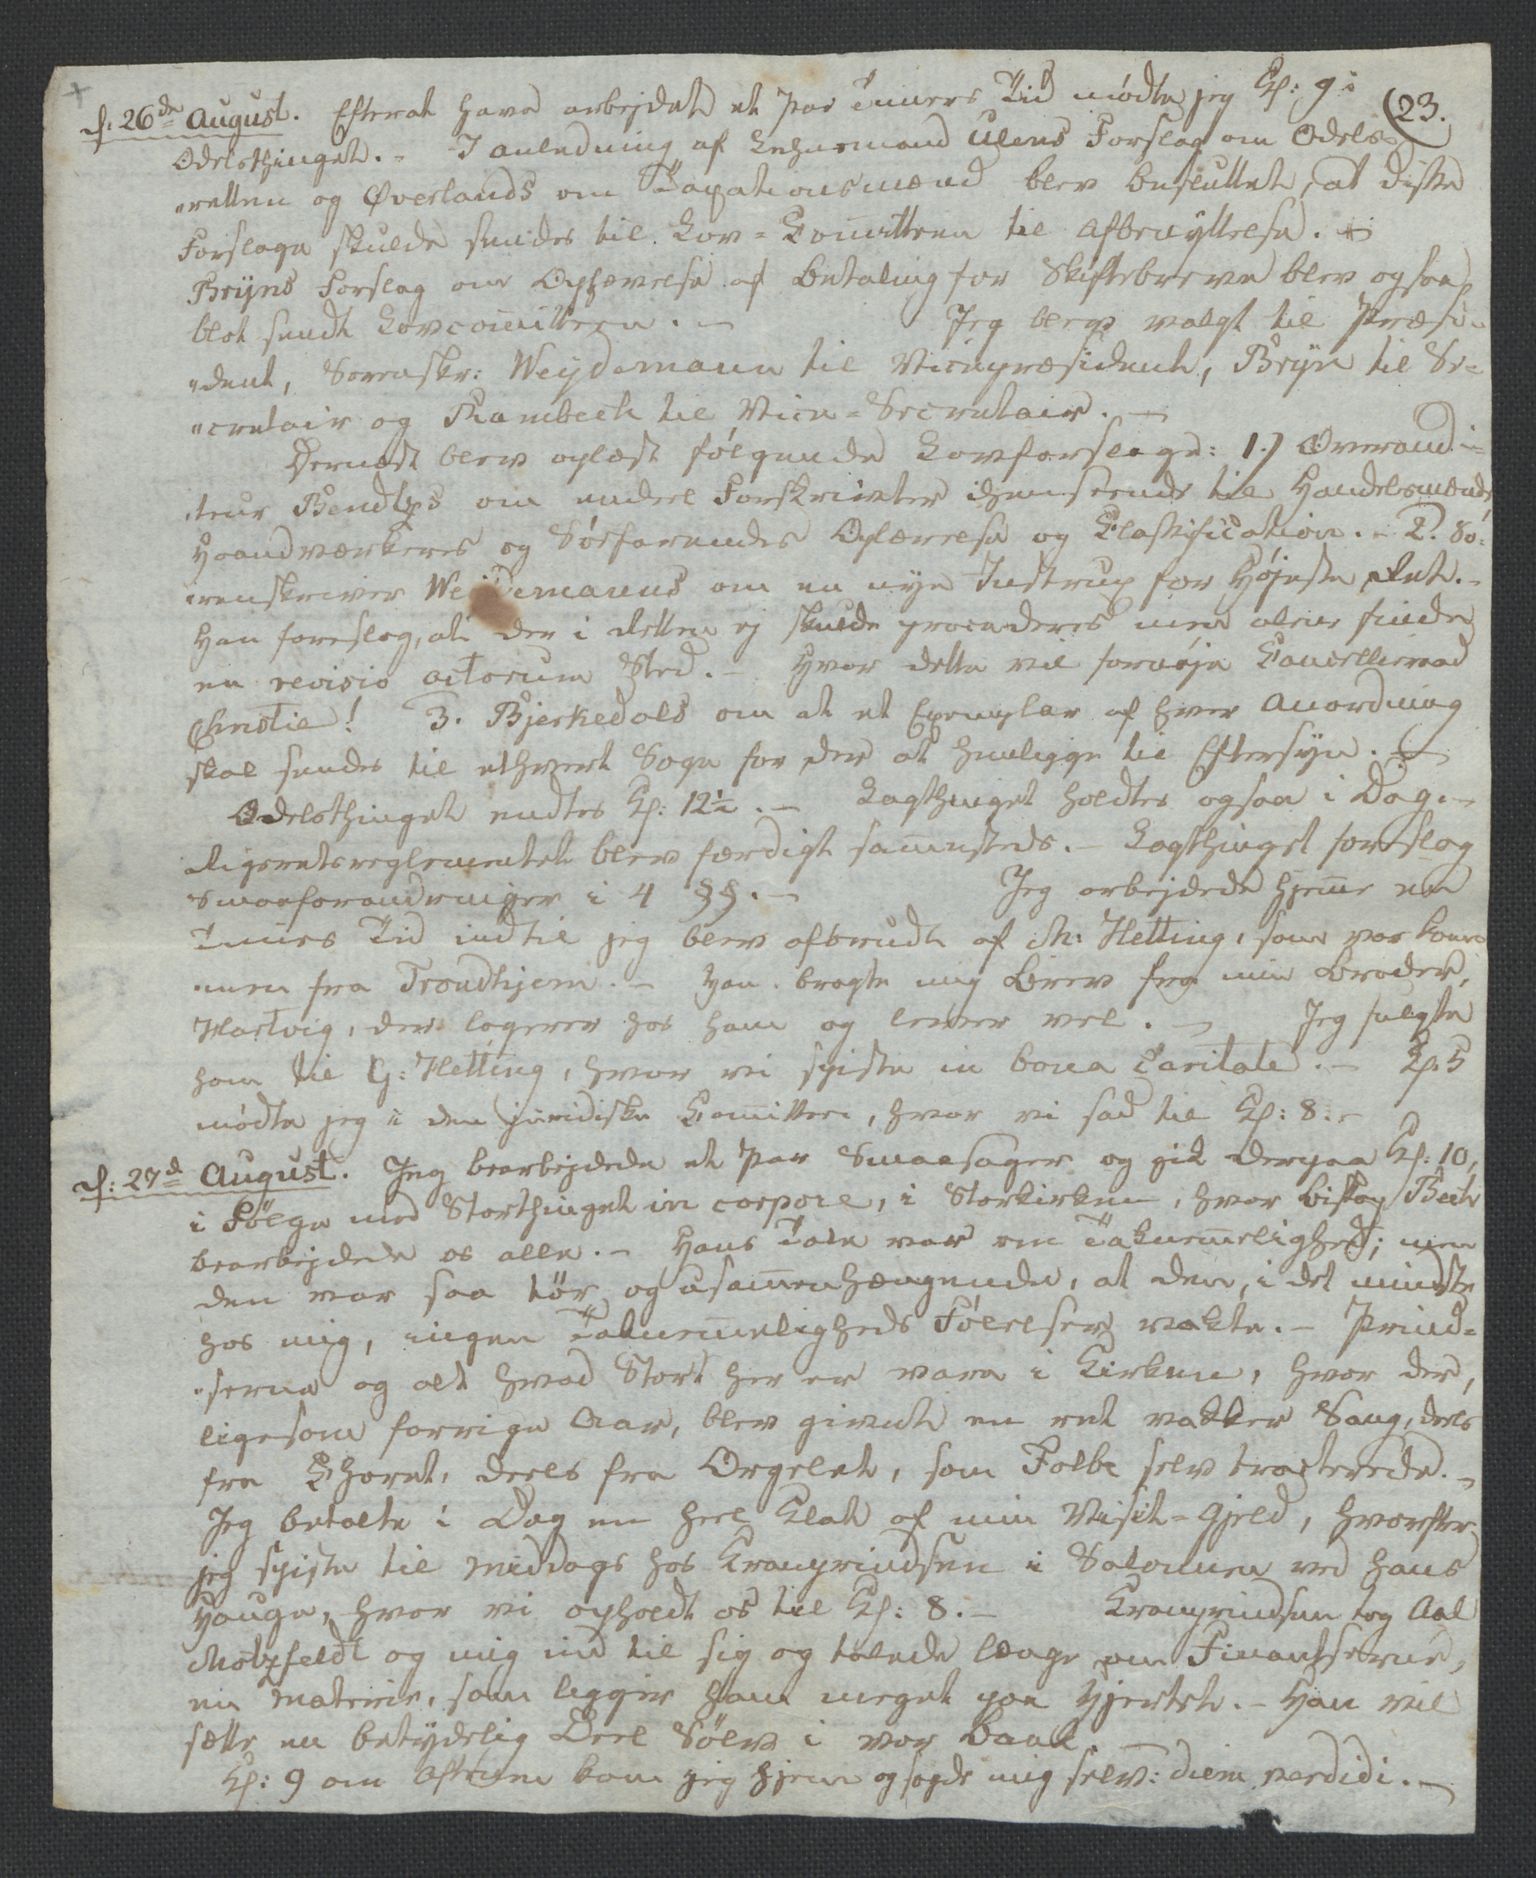 (23.
d: 26de August. Efterat have arbejdet et Par Timers Tid mødte jeg Kl: 9 i
Odelsthinget. - I anledning af Lehnsmand Ulens Forslag om Odels-
"retten og Øverlands om Taxationsmænd blev besluttet, at disse
Forslage skulde sendes til Lov-Comitteen til Afbenÿttelse.
Brÿns Forslag om Ophævelse af Betaling for Skiftebreve blev ogsaa
blot sendt Lovcomitteen. - Jeg blev valgt til Præsi-
"dent, Sorenskr: Weÿdemann til Vicepræsident, Brÿn til Se-
"cretair og Rambech til Vice-Secretair. -
Dernæst blev oplæst følgende Lovforslage: 1.) Overaudi-
teur Bendtzs om endeel Forskrivter ihenseende til Handelsmænds,
Haandværkeres og Søefarendes Oplærelse og Classification. - 2. So-
renskriver Weidemanns om en nÿe Instrux for Højeste Ret. -
Han foreslog, at der i Retten ej skulde procederes men alene finde
en revisio actorum Sted. - Hvor dette vil fornøje Cancelliraad
Christie! 3. Bjerkedals om at et Exemplar af hver Anordning
skal sendes til ethvert Sogn for der at henligge til Eftersÿn. -
Odelsthinget endtes Kl: 12½. - Lagthinget holdtes ogsaa i Dag. -
Rigsretsreglementet blev færdigt sammesteds. - Lagthinget foreslog
Smaaforandringer i 4 §§. - Jeg arbejdede hjemme en
Times Tid indtil jeg blev afbrudt af M: Hetting, som var kom-
"men fra Trondhjem. - Han bragte mig Brev fra min Broder,
Hartvig, der logerer hos ham og lever vel. - Jeg fulgte
ham til G: Hetting, hvor vi spiste in bona caritate. - Kl. 5
mødte jeg i den juridiske Comittee, hvor vi sad til Kl: 8. -
d: 27d August. Jeg bearbejdede et Par Smaasager og gik derpaa Kl: 10,
i Følge med Storthinget in corpore, i Storkirken, hvor Biskop Bech
bearbejdede os alle. - Hans Tale var om Taknemmelighed; men
den var saa tør og usammenhængende, at den, i det mindste
hos mig, ingen Taknemmeligheds Følelser vakte. - Prind-
"serne og alt hvad Stort her er vare i Kirken, hvor der,
ligesom forrige Aar, blev givet en ret vakker Sang, deels
fra Choret, deels fra Orgelet, som Folbe selv tracterede. -
Jeg betalte i Dag en heel Klat af min Visit-Gjeld, hvorefter
jeg spiste til Middags hos Kronprindsen i Salonnen ved hans
Hauge, hvor vi opholdt os til Kl: 8. - Kronprindsen tog Aal
Motzfeldt og mig ind til sig og talede længe om Finantserne,
en Materie, som ligger ham meget paa Hjertet. - Han vil
sætte en betÿdelig Deel Sølv i vor Bank.
Kl: 9 om Aftenen kom jeg hjem og sagde mig selv: diem perdidi. -